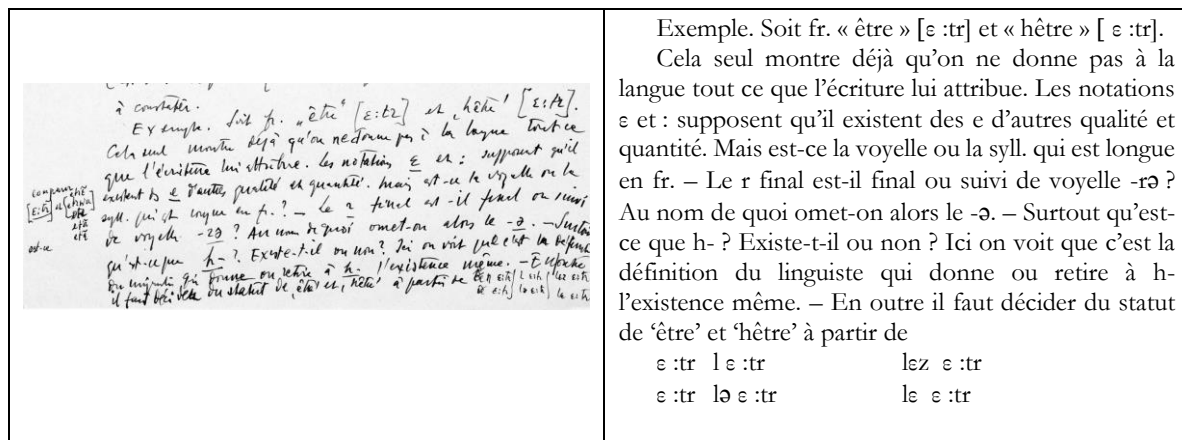 à constater.
Exemple. Soit fr. „être" [ε:tr] et ‚hêtre' [ε:tr].
Cela seul montre déjà qu'on ne donne pas à la langue tout ce
que l'écriture lui attribue. Les notations ε et : supposent qu'il
existent des e d'autres qualité et quantité. Mais est-ce la voyelle ou la
syll. qui est longue en fr.? – Le r final est-il final ou suivi
de voyelle -rə? Au nom de quoi omet-on alors le -ə. – Surtout
qu'est-ce que h-? Existe-t-il ou non? Ici on voit que c'est la définition
du linguiste qui donne ou retire à h- l'existence même. – En outre
il faut décider du statut de ‚être' et ‚hêtre' à partir de
Exemple. Soit fr. « être » [ε :tr] et « hêtre » [ ε :tr].
Cela seul montre déjà qu'on ne donne pas à la
langue tout ce que l'écriture lui attribue. Les notations
ε et : supposent qu'il existent des e d'autres qualité et
quantité. Mais est-ce la voyelle ou la syll. qui est longue
en fr. – Le r final est-il final ou suivi de voyelle -rə ?
Au nom de quoi omet-on alors le -ə. – Surtout qu'est-
ce que h- ? Existe-t-il ou non ? Ici on voit que c'est la
définition du linguiste qui donne ou retire à h-
l'existence même. – En outre il faut décider du statut
de ‘être' et ‘hêtre' à partir de
ε :tr l ε :tr lεz ε :tr
ε :tr lə ε :tr lε ε :tr